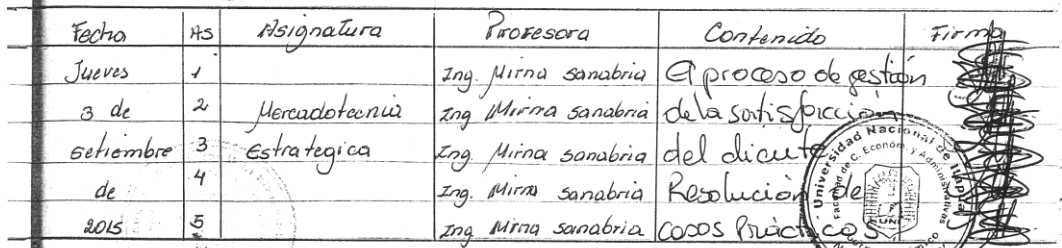 Fecha HS Asignatura Profesora Contenido Firma
Jueves 1 Ing. Mirna Sanabria El proceso de gestión
3 de 2 Mercadotecnia Ing Mirna Sanabria de la satisfacción
setiembre 3 Estrategica Ing. Mirna Sanabria del cliente
de 4 Ing. Mirna Sanabria Resolución de
2015 5 Ing Mirna Sanabria casos Prácticos
Universidad Nacional de Itapúa
Facultad de C. Económ. y Administrativas